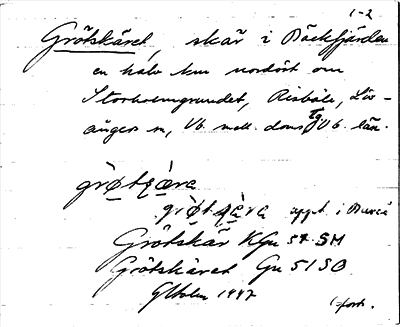 1-2
Grötskäret, skär i Bäckfjärden
en halv km nordöst om
Storholmgrundet, Risböle, Löv-
ånger sn, Vb. mell. doms Vb. län.
gròtʂæra
gròtʂàra uppt. i Bureå
Grötskär KGu 54 SM
Grötskäret Gu 51 SO
GHolm 1947
1 fort.